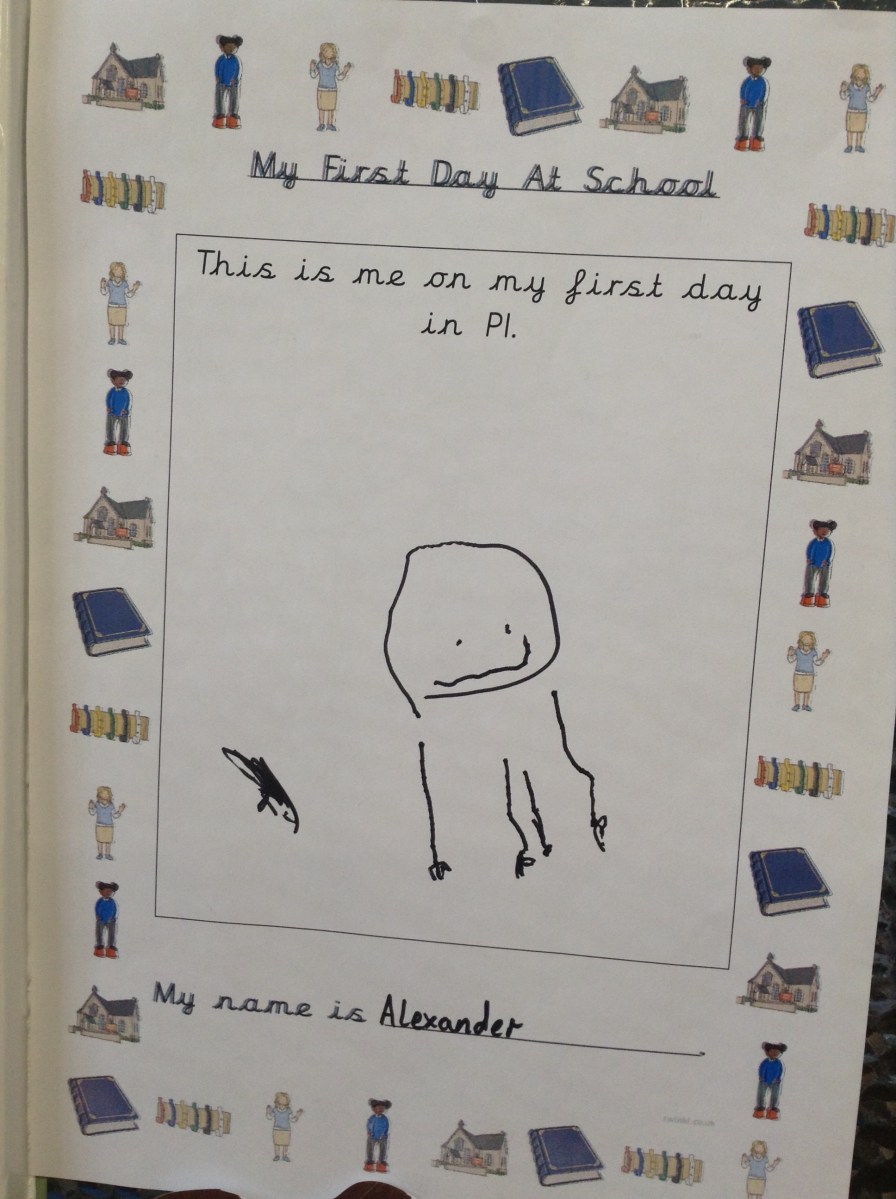 My First Day At School
This is me on my first day
in P1.
My name is Alexander